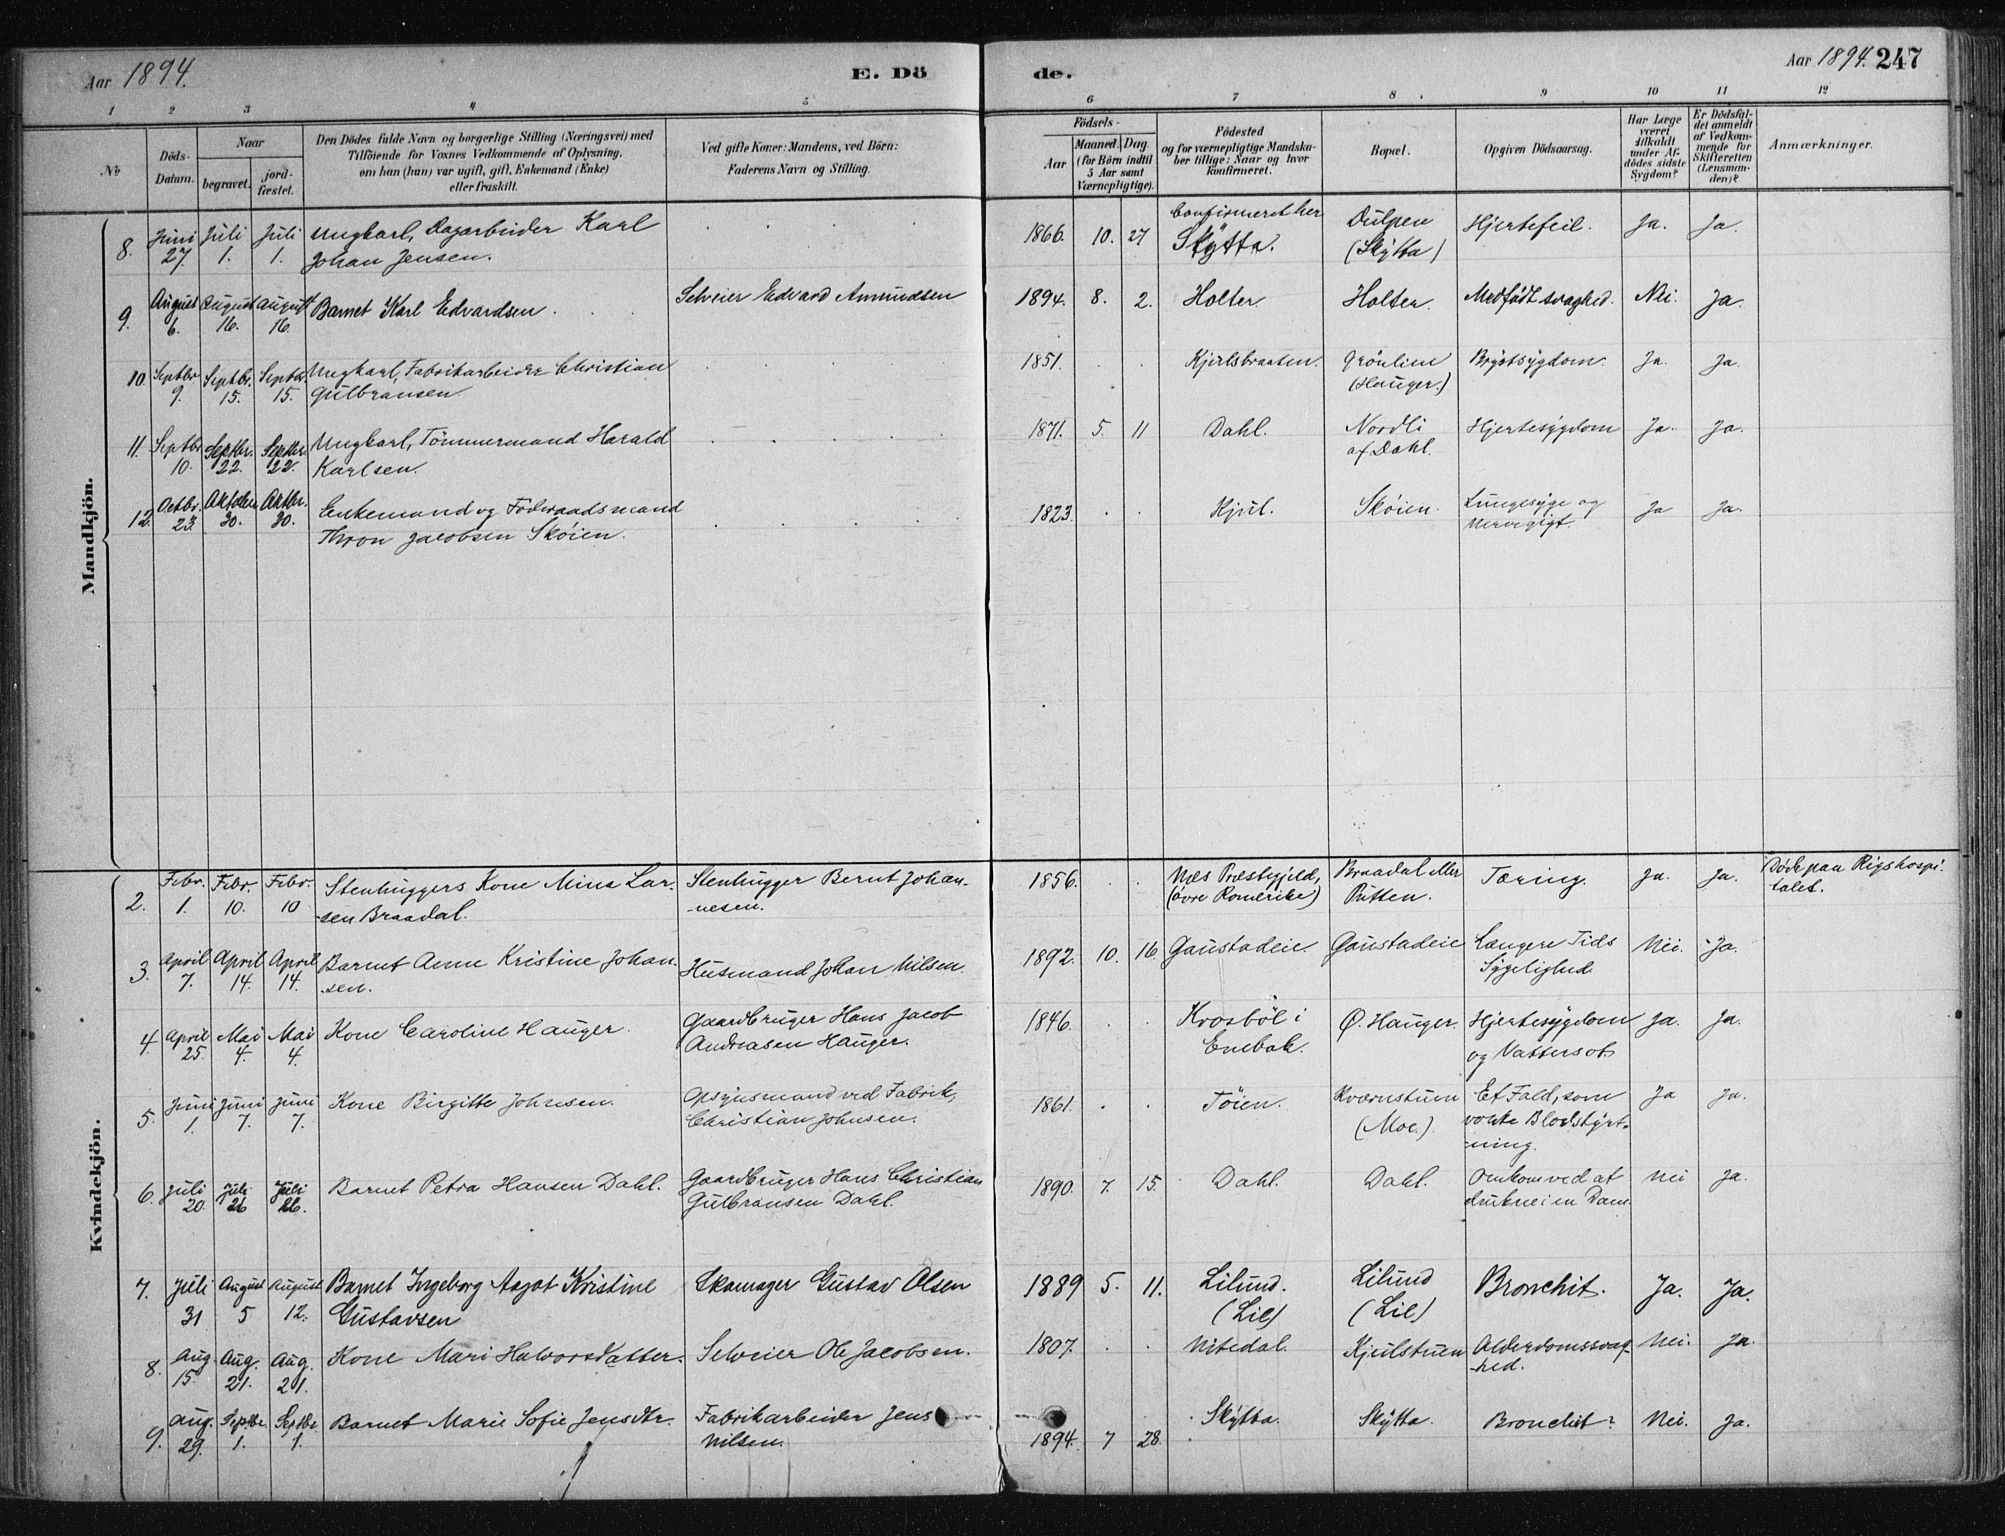 Aar 1894. E. Dö
de. Aar 1894. 247
1 2 3 4 5
6 7 8 9 10 11 12
No
Döds-
Datum.
Naar
begravet.
jord-
fæstet.
Den Dödes fulde Navn og borgerlige Stilling (Næringsvei) med
Tilföiende for Voxnes Vedkommende af Oplysning,
om han (hun) var ugift, gift, Enkemand (Enke)
eller fraskilt.
Ved gifte Koner: Mandens, ved Börn:
Faderens Navn og Stilling.
Födsels-
Aar
Maaned. Dag.
(for Börn indtil
5 Aar samt
Værnepligtige).
Födested
og for værnepligtige Mandska-
ber tillige: Naar og hvor
konfirmeret.
Bopæl.
Opgiven Dödsaarsag.
Har Læge
været
tilkaldt
under Af-
dödes sidste
Sygdom?
Er Dödsfal-
det anmeldt
af Vedkom-
mende for
Skifteretten
(Lensman-
den)?
Anmærkninger.
Mandkjön.
8. Juni 27. Juli 1. Juli 1. Ungkarl, Dagarbeider Karl
Johan Jensen.
1866. 10. 27 Confirmeret her
Skÿtta. Dulpen
(Skÿtta) Hjertefeil. Ja. Ja.
9. August 6. August 16. August 16. Barnet Karl Edvardsen. Selveier Edvard Amundsen
1894. 8. 2. Holter. Holter. Medfödt svaghed. Nei. Ja.
10. Septbr. 9. Septbr. 15. Septbr. 15. Ungkarl, Fabrikarbeider Christian
Gulbransen
1851. Kjerlsbraaten. Grönlien
(Hauger.) Brÿstsÿgdom. Ja. Ja.
11. Septbr 10. Septbr. 22. Septbr. 22. Ungkarl, Tömmermand Harald
Karlsen.
1871. 5. 11 Dahl. Nordli
af Dahl. Hjertesÿgdom Ja. Ja.
12. Octbr. 23. Oktober 30. Oktbr. 30. Enkemand og Föderaadsmand
Thron Jacobsen Skøien.
1823. Kjul. Skøien. Lungesyge og
Nervegigt. Ja Ja.
Kvindekjön.
2. Febr. 1. Febr. 10. Febr. 10 Stenhuggers Kone Mina Lar-
sen Braadal. Stenhugger Bernt Johan-
nesen.
1856. Næs Præstegjeld,
(övre Romerike) Braadal eller
Putten. Tæring. Ja. Ja. Döde paa Rigshospi-
talet.
3. April 7. April 14. April 14. Barnet Anne Kristine Johan-
sen. Husmand Johan Nilsen.
1892. 10. 16. Gaustadeie. Gaustadeie Længere Tids
Sÿgelighed Nei. Ja.
4. April 25. Mai 4. Mai 4. Kone Caroline Hauger. Gaardbruger Hans Jacob
Andreasen Hauger.
1846. Krosböl i
Enebak. Ø. Hauger. Hjertesÿgdom
og Vattersot Ja. Ja.
5. Juni 1. Juni 7. Juni 7. Kone Birgitte Johnsen. Opsynsmand ved Fabrik,
Christian Johnsen.
1861. Töien. Kværnstuen
(Moe). Et Fald, som
vakte Blodstÿrt-
ning. Ja Ja.
6. Juli 20. Juli 26 Juli 26. Barnet Petra Hansen Dahl. Gaardbruger Hans Christian
Gulbransen Dahl.
1890. 7. 15. Dahl. Dahl. Omkom ved at
drukne i en Dam. Nei Ja.
7. Juli 31 August 5 August 12. Barnet Ingeborg Aagot Kristine
Gustavsen Skomager Gustav Olsen
1889 5. 11. Lilund.
(Lie) Lilund
(Lie) Bronchit. Ja. Ja.
8. Aug. 15. Aug. 21. Aug. 21. Kone Mari Halvorsdatter. Selveier Ole Jacobsen.
1807. Nitedal. Kjulstuen Alderdomssvag-
hed. Nei. Ja.
9. Aug. 29. Septbr. 1. Septbr. 1. Barnet Marie Sofie Jensdtr. Fabrikarbeider Jens
Nilsen.
1894. 7 28. Skÿtta. Skÿtta. Bronchit? Nei. Ja.